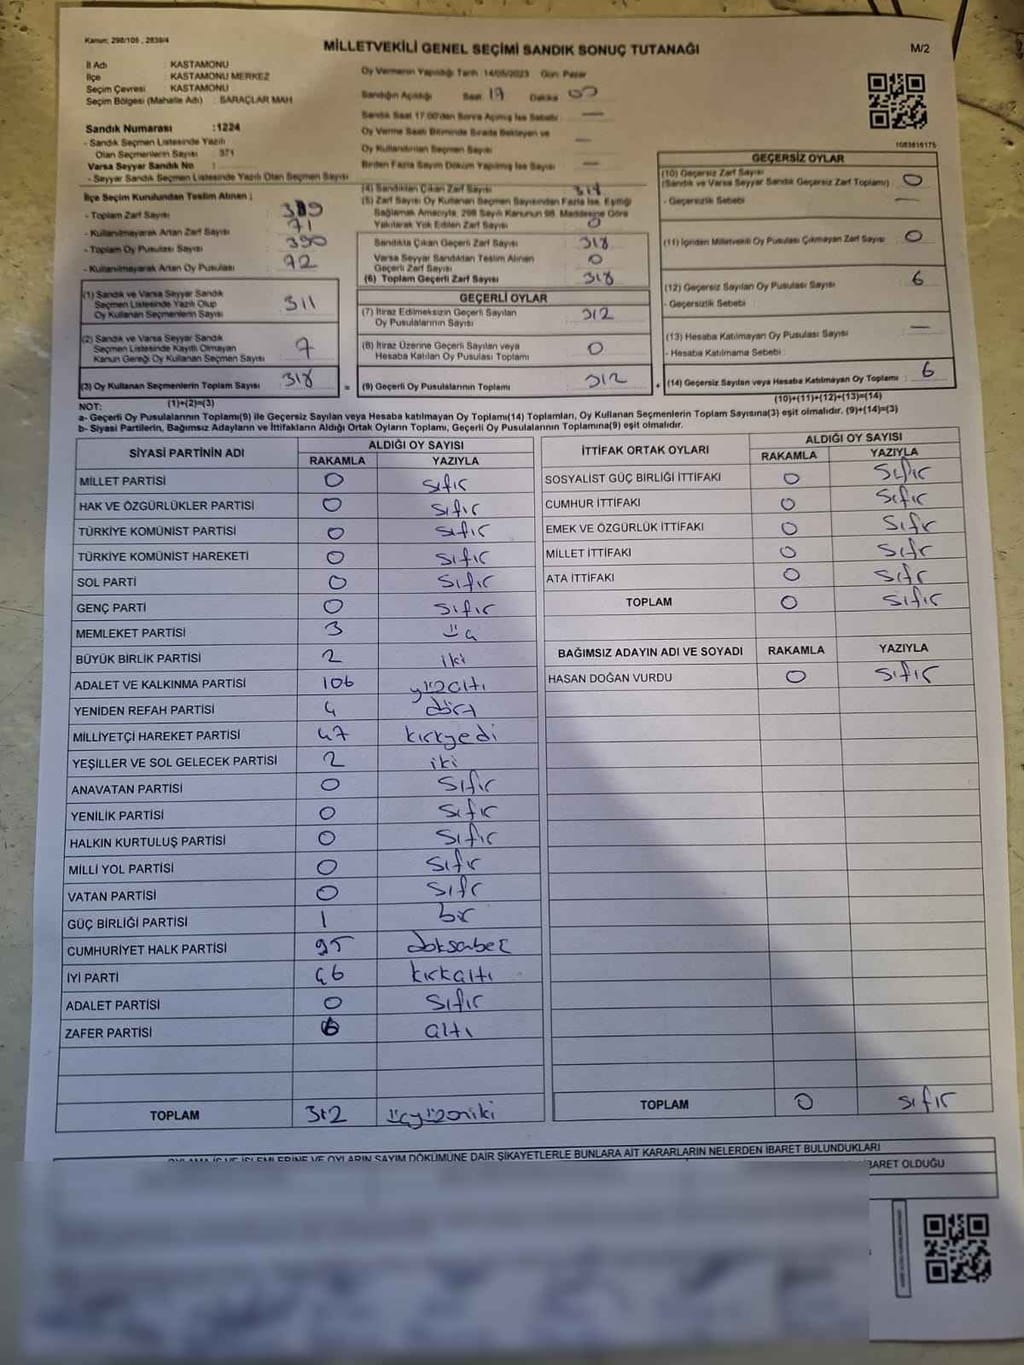 Kanun: 298/105 , 2839/4
MİLLETVEKİLİ GENEL SEÇİMİ SANDIK SONUÇ TUTANAĞI
M/2
İl Adı : KASTAMONU
İlçe : KASTAMONU MERKEZ
Seçim Çevresi : KASTAMONU
Seçim Bölgesi (Mahalle Adı) : SARAÇLAR MAH
Oy Vermenin Yapıldığı Tarih 14/05/2023 Gün Pazar
Sandığın Açıldığı Saat 17 Dakika
Sandık Saat 17.00'den Sonra Açılmış İse Sebebi —
Oy Verme Saati Bitiminde Sırada Bekleyen ve
Oy Kullandırılan Seçmen Sayısı —
Birden Fazla Sayım Döküm Yapılmış İse Sayısı —
Sandık Numarası :1224
- Sandık Seçmen Listesinde Yazılı
Olan Seçmenlerin Sayısı : 371
Varsa Seyyar Sandık No :
- Seyyar Sandık Seçmen Listesinde Yazılı Olan Seçmen Sayısı
1083616175
İlçe Seçim Kurulundan Teslim Alınan ;
- Toplam Zarf Sayısı
- Kullanılmayarak Artan Zarf Sayısı 71
- Toplam Oy Pusulası Sayısı 390
- Kullanılmayarak Artan Oy Pusulası 72
(1) Sandık ve Varsa Seyyar Sandık
Seçmen Listesinde Yazılı Olup
Oy Kullanan Seçmenlerin Sayısı 311
(2) Sandık ve Varsa Seyyar Sandık
Seçmen Listesinde Kayıtlı Olmayan
Kanun Gereği Oy Kullanan Seçmen Sayısı 7
(3) Oy Kullanan Seçmenlerin Toplam Sayısı 318
(1)+(2)=(3)
(4) Sandıktan Çıkan Zarf Sayısı 318
(5) Zarf Sayısı Oy Kullanan Seçmen Sayısından Fazla İse, Eşitliği
Sağlamak Amacıyla, 298 Sayılı Kanunun 98. Maddesine Göre
Yakılarak Yok Edilen Zarf Sayısı 0
Sandıkta Çıkan Geçerli Zarf Sayısı 318
Varsa Seyyar Sandıktan Teslim Alınan
Geçerli Zarf Sayısı 0
(6) Toplam Geçerli Zarf Sayısı 318
GEÇERLİ OYLAR
(7) İtiraz Edilmeksizin Geçerli Sayılan
Oy Pusulalarının Sayısı 312
(8) İtiraz Üzerine Geçerli Sayılan veya
Hesaba Katılan Oy Pusulası Toplamı 0
= (9) Geçerli Oy Pusulalarının Toplamı 312
GEÇERSİZ OYLAR
(10) Geçersiz Zarf Sayısı
(Sandık ve Varsa Seyyar Sandık Geçersiz Zarf Toplamı) 0
- Geçersizlik Sebebi —
(11) İçinden Milletvekili Oy Pusulası Çıkmayan Zarf Sayısı 0
(12) Geçersiz Sayılan Oy Pusulası Sayısı 6
- Geçersizlik Sebebi
(13) Hesaba Katılmayan Oy Pusulası Sayısı —
- Hesaba Katılmama Sebebi
+ (14) Geçersiz Sayılan veya Hesaba Katılmayan Oy Toplamı : 6
(10)+(11)+(12)+(13)=(14)
NOT:
a- Geçerli Oy Pusulalarının Toplamı(9) ile Geçersiz Sayılan veya Hesaba katılmayan Oy Toplamı(14) Toplamları, Oy Kullanan Seçmenlerin Toplam Sayısına(3) eşit olmalıdır. (9)+(14)=(3)
b- Siyasi Partilerin, Bağımsız Adayların ve İttifakların Aldığı Ortak Oyların Toplamı, Geçerli Oy Pusulalarının Toplamına(9) eşit olmalıdır.
SİYASİ PARTİNİN ADI ALDIĞI OY SAYISI
RAKAMLA YAZIYLA
MİLLET PARTİSİ 0 sıfır
HAK VE ÖZGÜRLÜKLER PARTİSİ 0 sıfır
TÜRKİYE KOMÜNİST PARTİSİ 0 sıfır
TÜRKİYE KOMÜNİST HAREKETİ 0 sıfır
SOL PARTİ 0 sıfır
GENÇ PARTİ 0 sıfır
MEMLEKET PARTİSİ 3 üç
BÜYÜK BİRLİK PARTİSİ 2 iki
ADALET VE KALKINMA PARTİSİ 106 yüzaltı
YENİDEN REFAH PARTİSİ 4 dört
MİLLİYETÇİ HAREKET PARTİSİ 47 kırkyedi
YEŞİLLER VE SOL GELECEK PARTİSİ 2 iki
ANAVATAN PARTİSİ 0 Sıfır
YENİLİK PARTİSİ 0 Sıfır
HALKIN KURTULUŞ PARTİSİ 0 Sıfır
MİLLİ YOL PARTİSİ 0 Sıfır
VATAN PARTİSİ 0 Sıfır
GÜÇ BİRLİĞİ PARTİSİ 1 bir
CUMHURİYET HALK PARTİSİ 95 doksanbeş
İYİ PARTİ 46 kırkaltı
ADALET PARTİSİ 0 Sıfır
ZAFER PARTİSİ 6 altı
TOPLAM 312 üçyüzoniki
İTTİFAK ORTAK OYLARI ALDIĞI OY SAYISI
RAKAMLA YAZIYLA
SOSYALİST GÜÇ BİRLİĞİ İTTİFAKI 0 Sıfır
CUMHUR İTTİFAKI 0 Sıfır
EMEK VE ÖZGÜRLÜK İTTİFAKI 0 Sıfır
MİLLET İTTİFAKI 0 Sıfır
ATA İTTİFAKI 0 Sıfır
TOPLAM 0 Sıfır
BAĞIMSIZ ADAYIN ADI VE SOYADI RAKAMLA YAZIYLA
HASAN DOĞAN VURDU 0 Sıfır
TOPLAM 0 sıfır
OYLAMA İŞ VE İŞLEMLERİNE VE OYLARIN SAYIM DÖKÜMÜNE DAİR ŞİKAYETLERLE BUNLARA AİT KARARLARIN NELERDEN İBARET BULUNDUKLARI
BARET OLDUĞU